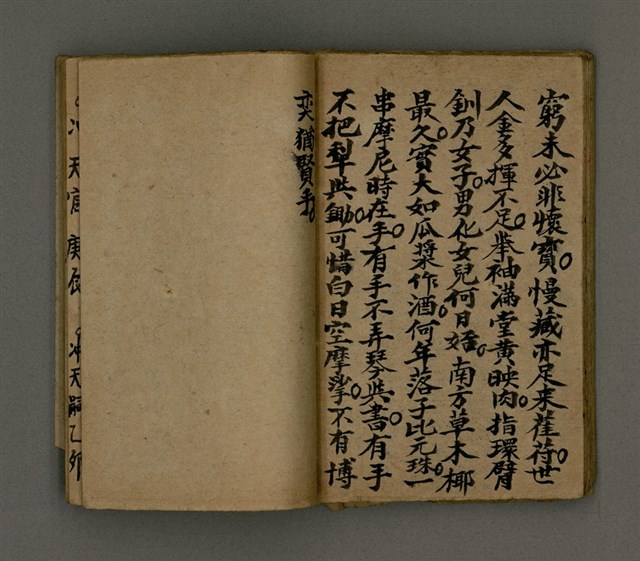 窮未必非懷寶。慢藏亦足来萑苻。世
人金多揮不足。举袖滿堂黄映肉。指環臂
釧乃女子。男化女兒何日始。南方草木椰
最久。實大如瓜漿作酒。何年落子比元珠。一
串摩尼時在手。有手不弄琴與書。有手
不把犁與鋤。可惜白日空摩挲。不有博
奕猶賢乎。
冲天官庚辰
冲天嗣乙卯